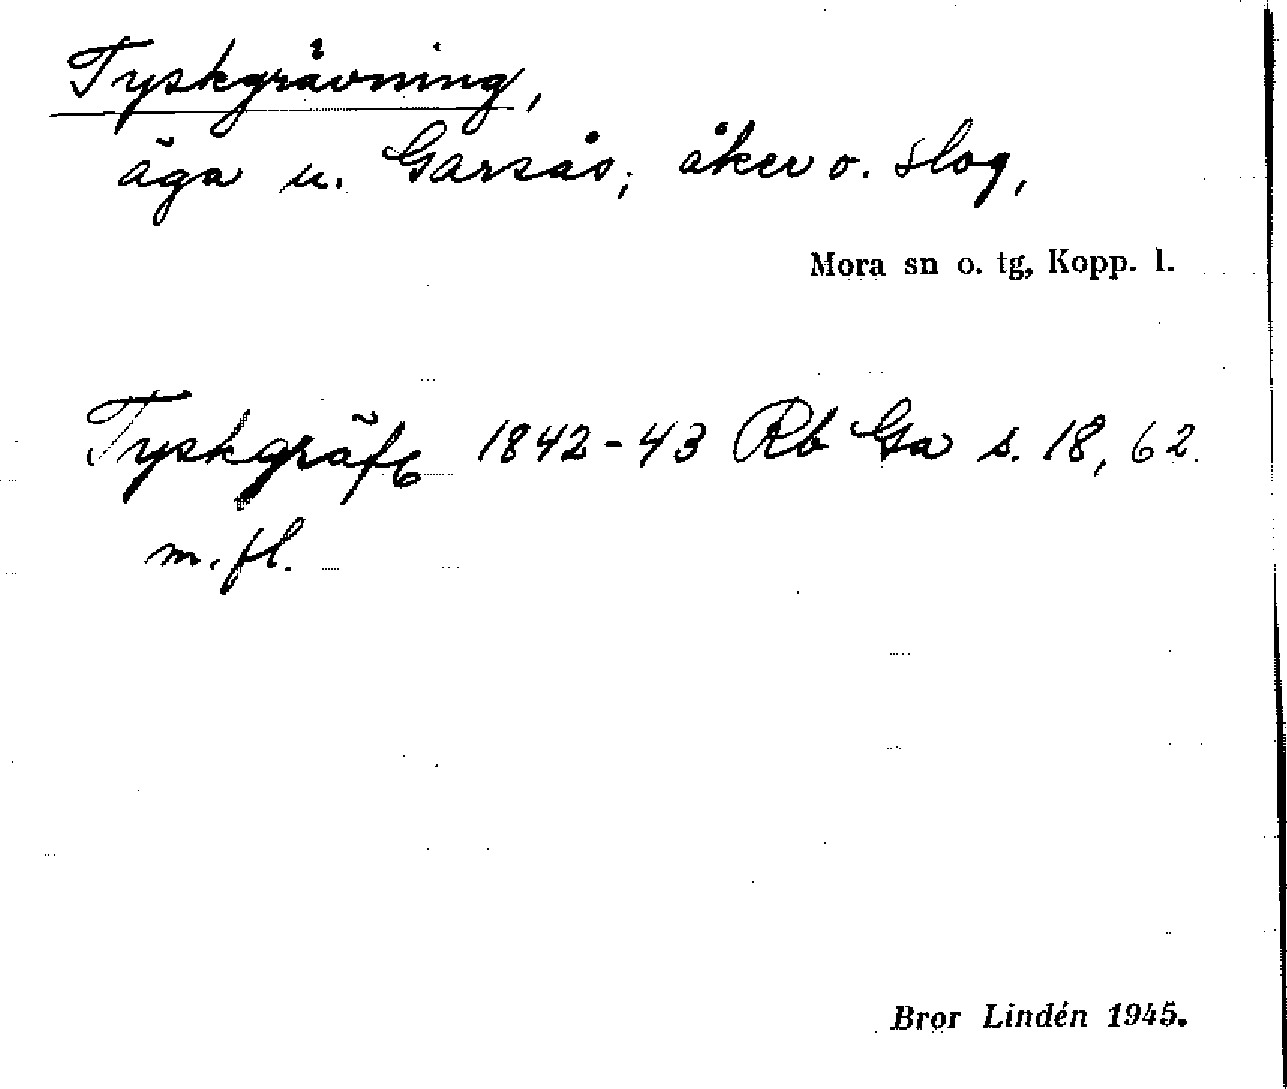 Tyskgrävning,
äga u. Garsås; åker o. slog,
Mora sn o. tg, Kopp. l.
Tyskgräft 1842-43 Rb Ga s. 18, 62.
m. fl.
Bror Lindén 1945.